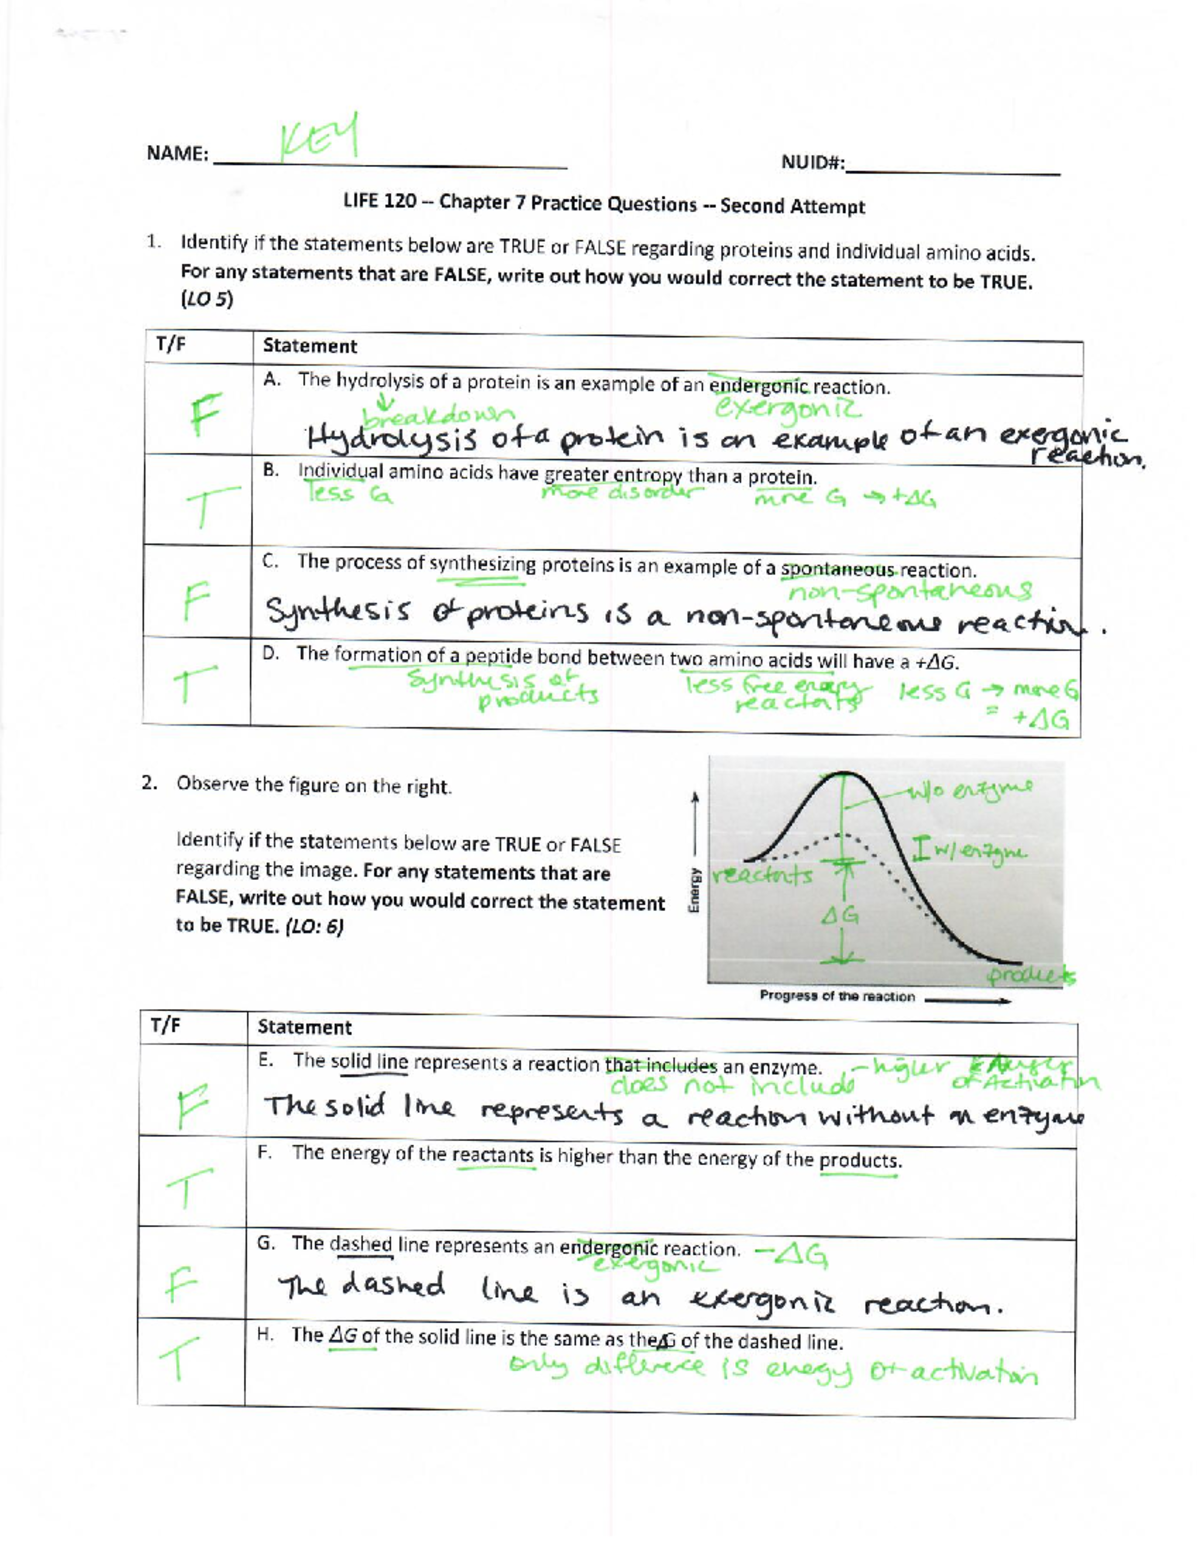 KEY
NAME: NUID#:
LIFE 120 -- Chapter 7 Practice Questions -- Second Attempt
1. Identify if the statements below are TRUE or FALSE regarding proteins and individual amino acids.
For any statements that are FALSE, write out how you would correct the statement to be TRUE.
(LO 5)
T/F Statement
A. The hydrolysis of a protein is an example of an endergonic reaction.
F breakdown exergonic
Hydrolysis of a protein is an example of an exergonic
reaction.
B. Individual amino acids have greater entropy than a protein.
T less G more disorder more G → +ΔG
C. The process of synthesizing proteins is an example of a spontaneous reaction.
F non-spontaneous
Synthesis of proteins is a non-spontaneous reaction.
D. The formation of a peptide bond between two amino acids will have a +ΔG.
T Synthesis of less free energy less G → more G
products reactants = +ΔG
2. Observe the figure on the right.
Identify if the statements below are TRUE or FALSE
regarding the image. For any statements that are
FALSE, write out how you would correct the statement
to be TRUE. (LO: 6)
w/o enzyme
w/ enzyme
reactants
Energy
ΔG
products
Progress of the reaction
T/F Statement
E. The solid line represents a reaction that includes an enzyme. - higher Energy
does not include of Activation
F The solid line represents a reaction without an enzyme
F. The energy of the reactants is higher than the energy of the products.
T
G. The dashed line represents an endergonic reaction. -ΔG
exergonic
F The dashed line is an exergonic reaction.
H. The ΔG of the solid line is the same as the ΔG of the dashed line.
T only difference is energy of activation